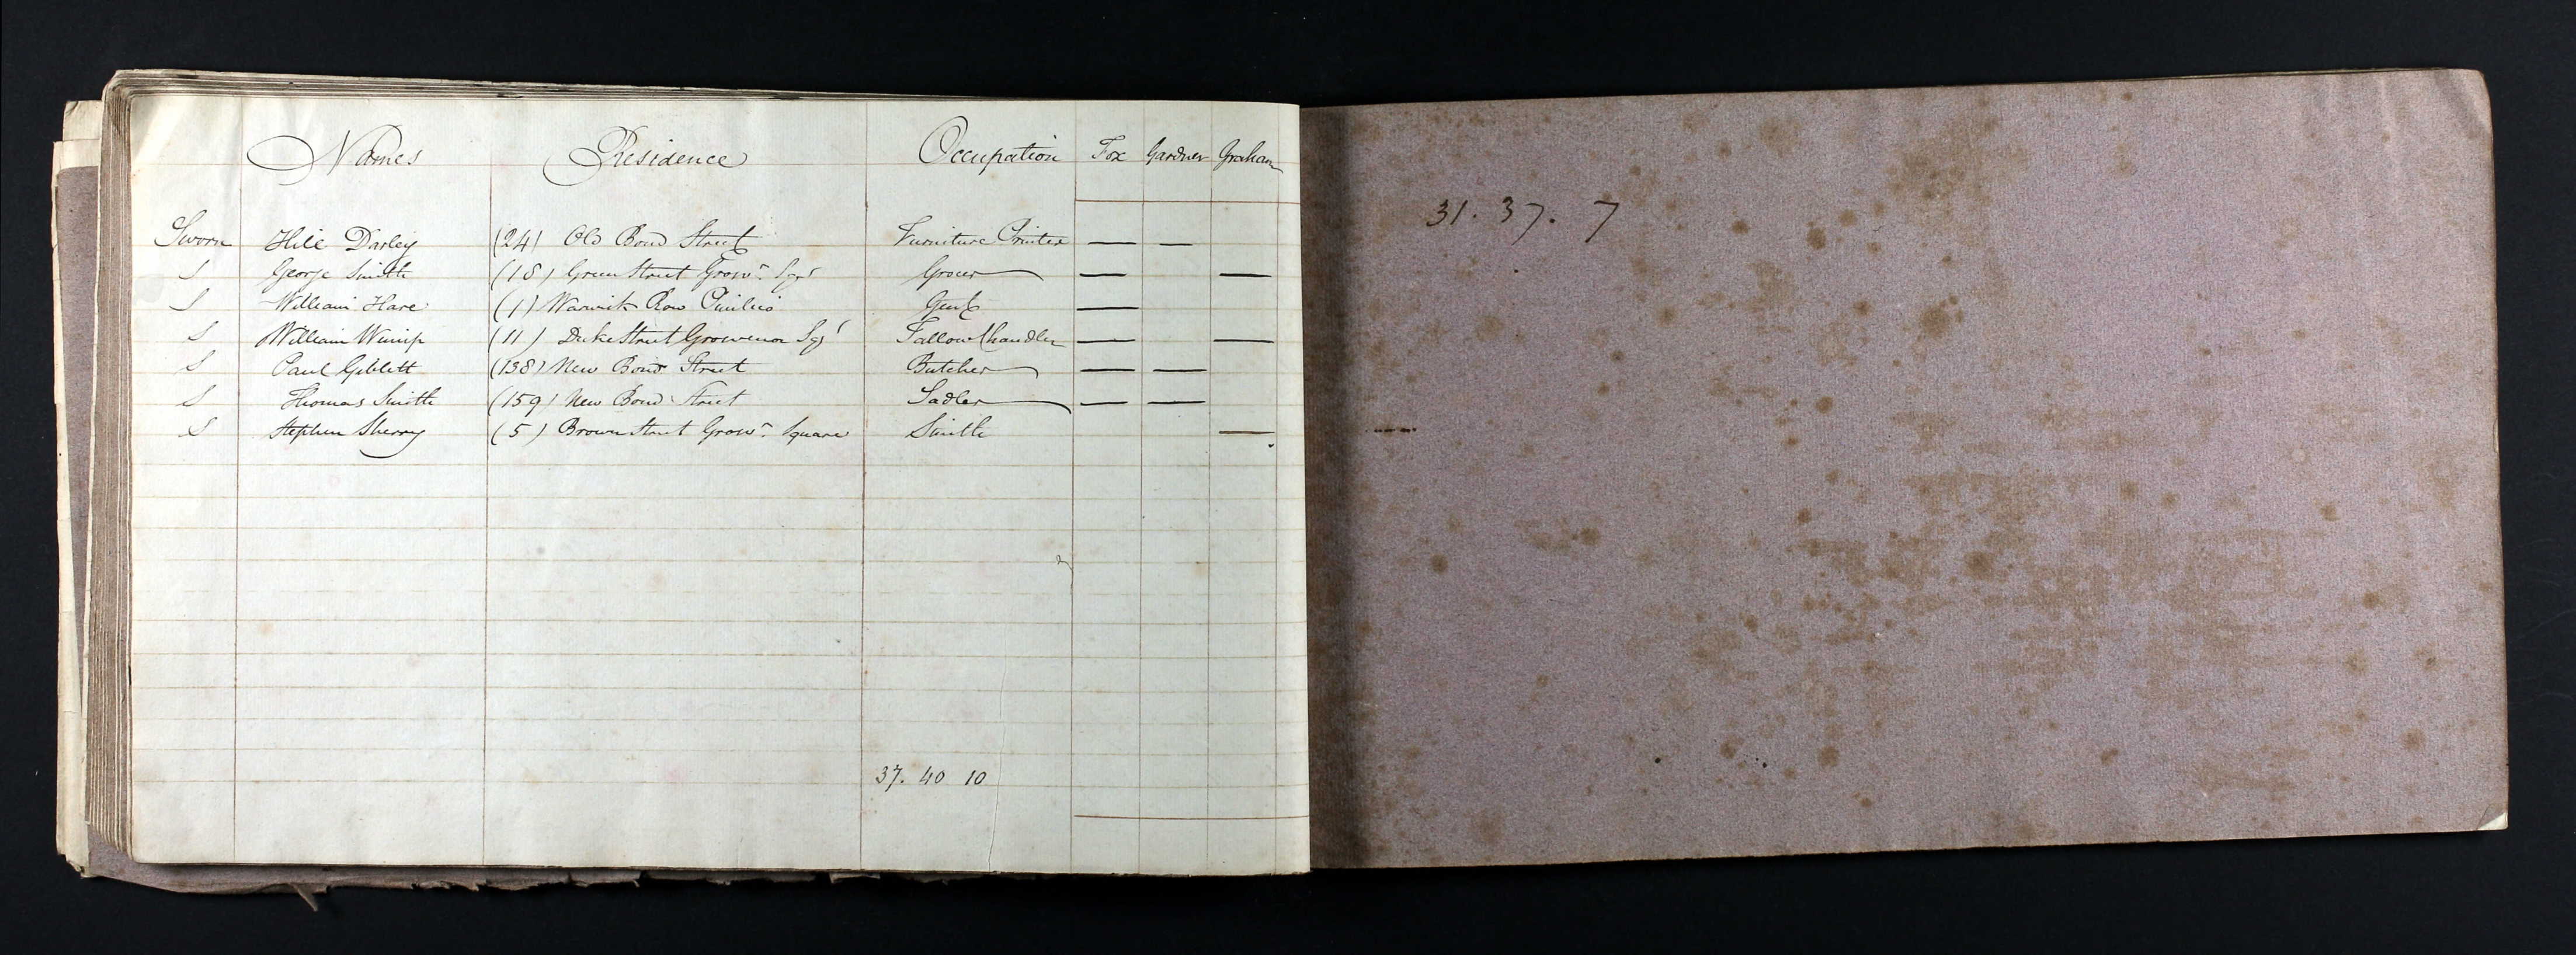 Names Residence Occupation Fox Gardner Graham
Sworn Hill Darley (24) Old Bond Street Furniture Printer — —
S George Smith (18) Green Street Grosvr. Sqr Grocer — —
S William Hare (1) Warwick Row Pimlico Gent —
S William Wimp (11) Duke Street Grosvenor Sqr Tallow Chandler — —
S Paul Giblett (138) New Bond Street Butcher — —
S Thomas Smith (159) New Bond Street Sadler — —
S Stephen Sherry (5) Brown Street Grosvr. Square Smith —
37. 40 10
31. 37. 7